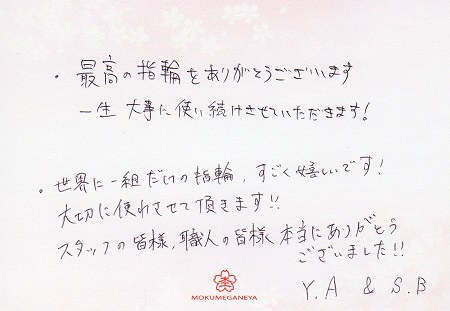 ・最高の指輪をありがとうございます
一生大事に使い続けさせていただきます!
・世界に一組だけの指輪、すごく嬉しいです!
大切に使わさせて頂きます!!
スタッフの皆様、職人の皆様 本当にありがとう
ございました!!
MOKUMEGANEYA
Y.A & S.B